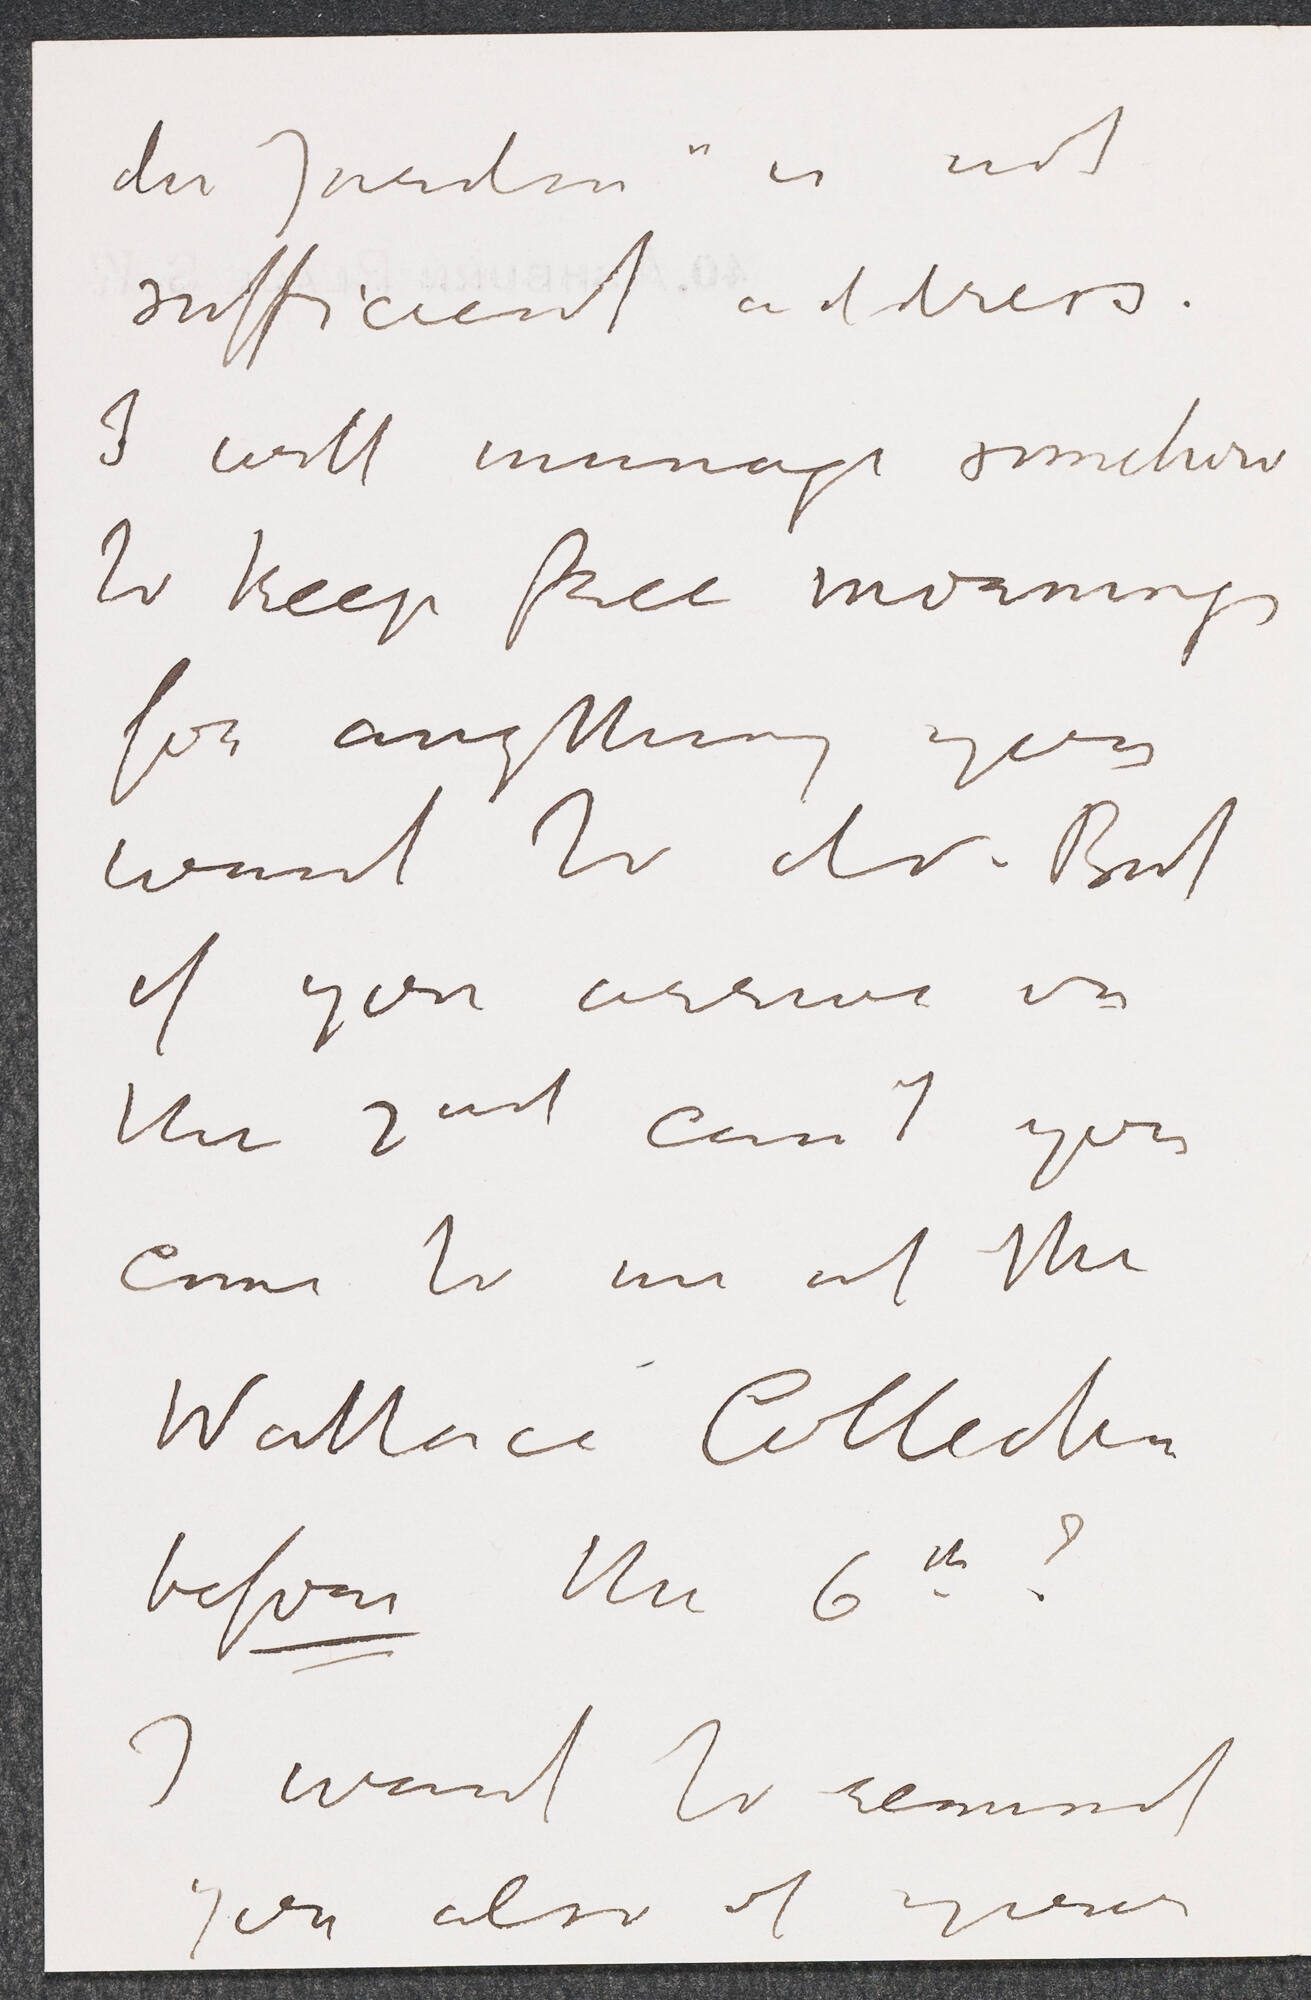 du Jardin" is not
sufficient address.
I will manage somehow
to keep free mornings
for anything you
want to do. But
if you arrive on
the 2nd can't you
come to me at the
Wallace Collection
before the 6th?
I want to remind
you also of your